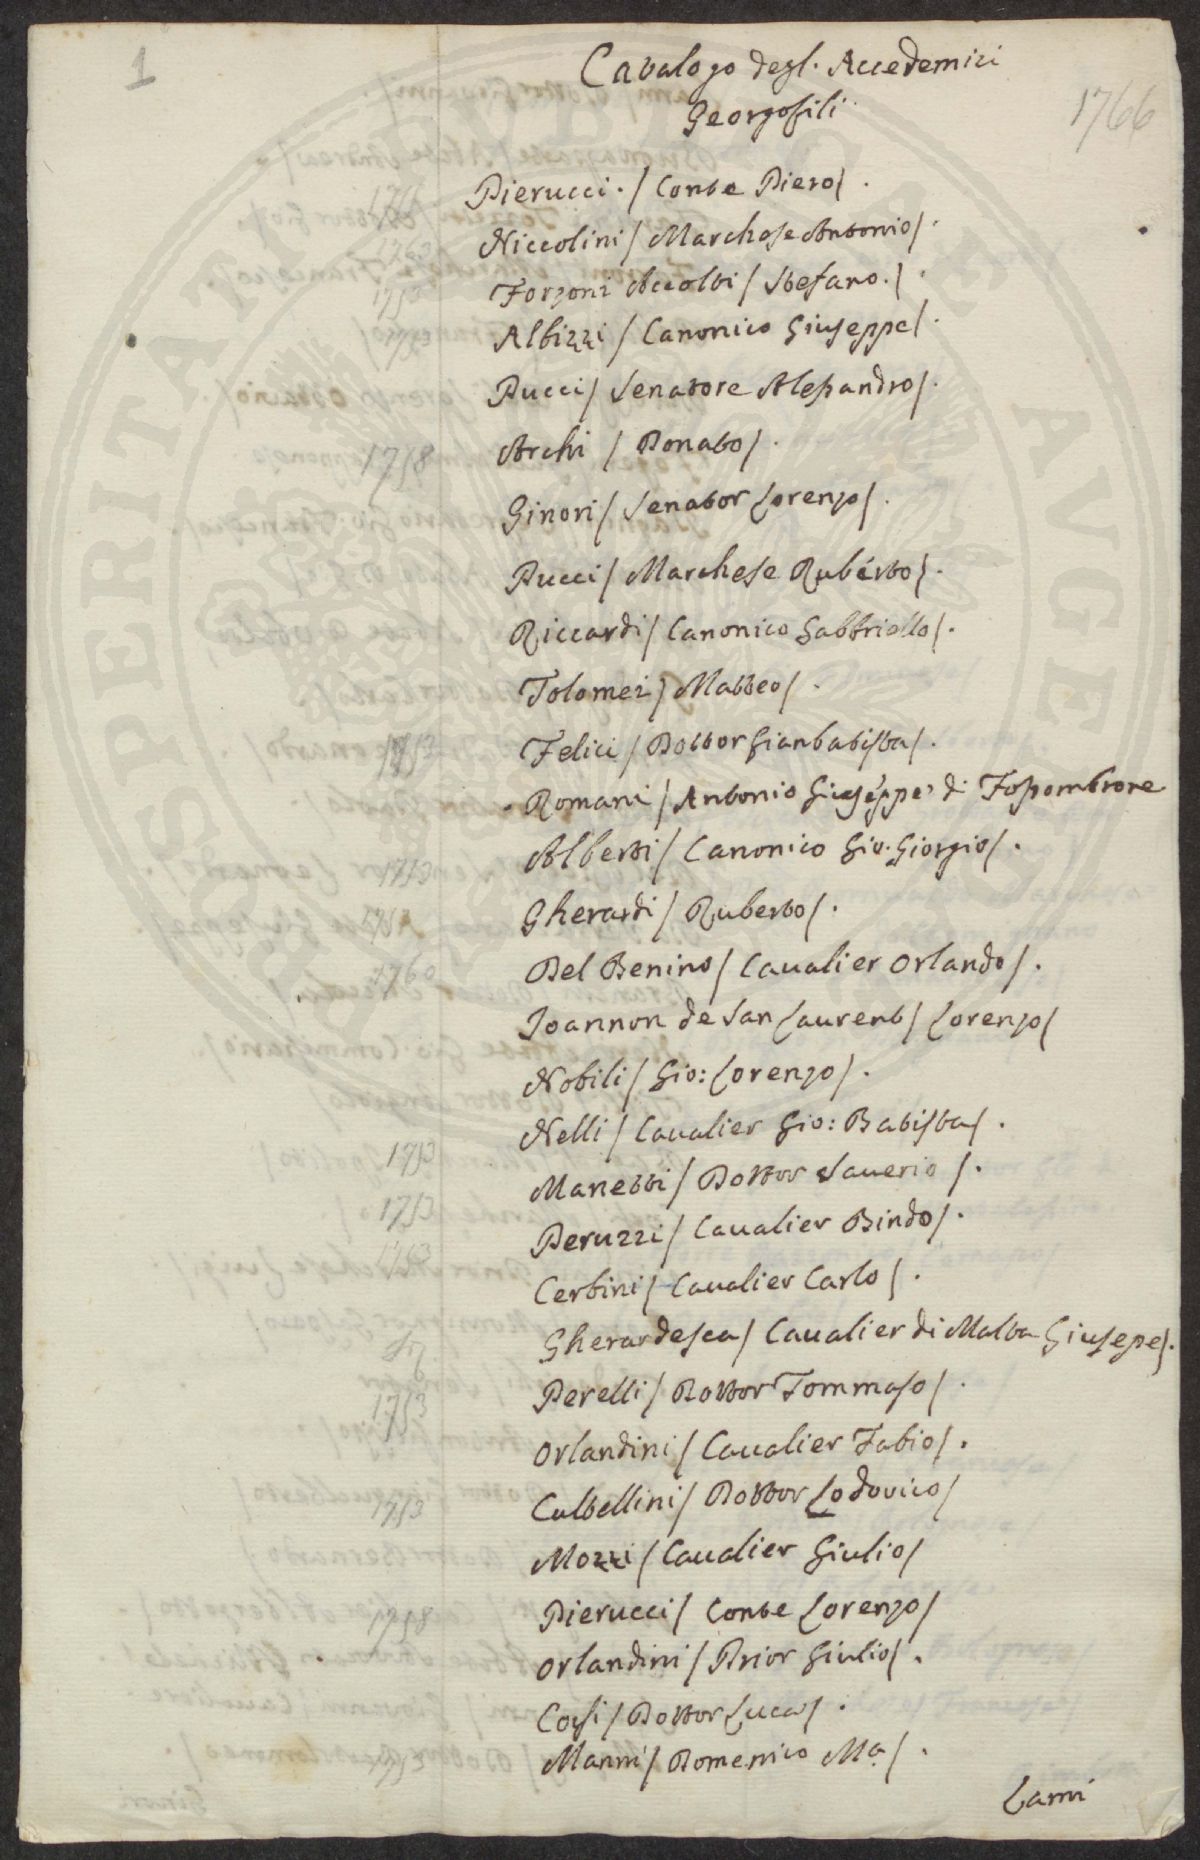 1
Catalogo degl. Accademici
Georgofili
1766
Pierucci. / Conte Piero / .
Niccolini / Marchese Antonio / .
Forzoni Accolti / Stefano. / .
Albizzi / Canonico Giuseppe / .
Pucci / Senatore Alessandro / .
1758 Archi / Donato / .
Ginori / Senator Lorenzo / .
Pucci / Marchese Ruberto / .
Riccardi / Canonico Gabbriello / .
Tolomei / Matteo / .
1753 Felici / Dottor Gianbatista / .
Romani / Antonio Giuseppe di Fossombrone
1753 Alberti / Canonico Gio. Giorgio / .
1753 Gherardi / Ruberto / .
1760 Del Benino / Caualier Orlando / .
Joannon de San Laurent / Lorenzo /
Nobili / Gio: Lorenzo / .
Nelli / Caualier Gio: Batista / .
1753 Manetti / Dottor Sauerio / .
1753 Peruzzi / Caualier Bindo / .
1763 Cerbini / Caualier Carlo / .
Gherardesca / Caualier di Malta Giusepe / .
1753 Perelli / Dottor Tommaso / .
Orlandini / Caualier Fabio / .
1753 Cultellini / Dottor Lodouico /
Mozzi / Caualier Giulio /
1758 Pierucci / Conte Lorenzo /
Orlandini / Prior Giulio / .
Corsi / Dottor Luca / .
1753 Manni / Domenico Ma. / .
Lami
PROSPERITATI PUBLICAE AUGENDAE